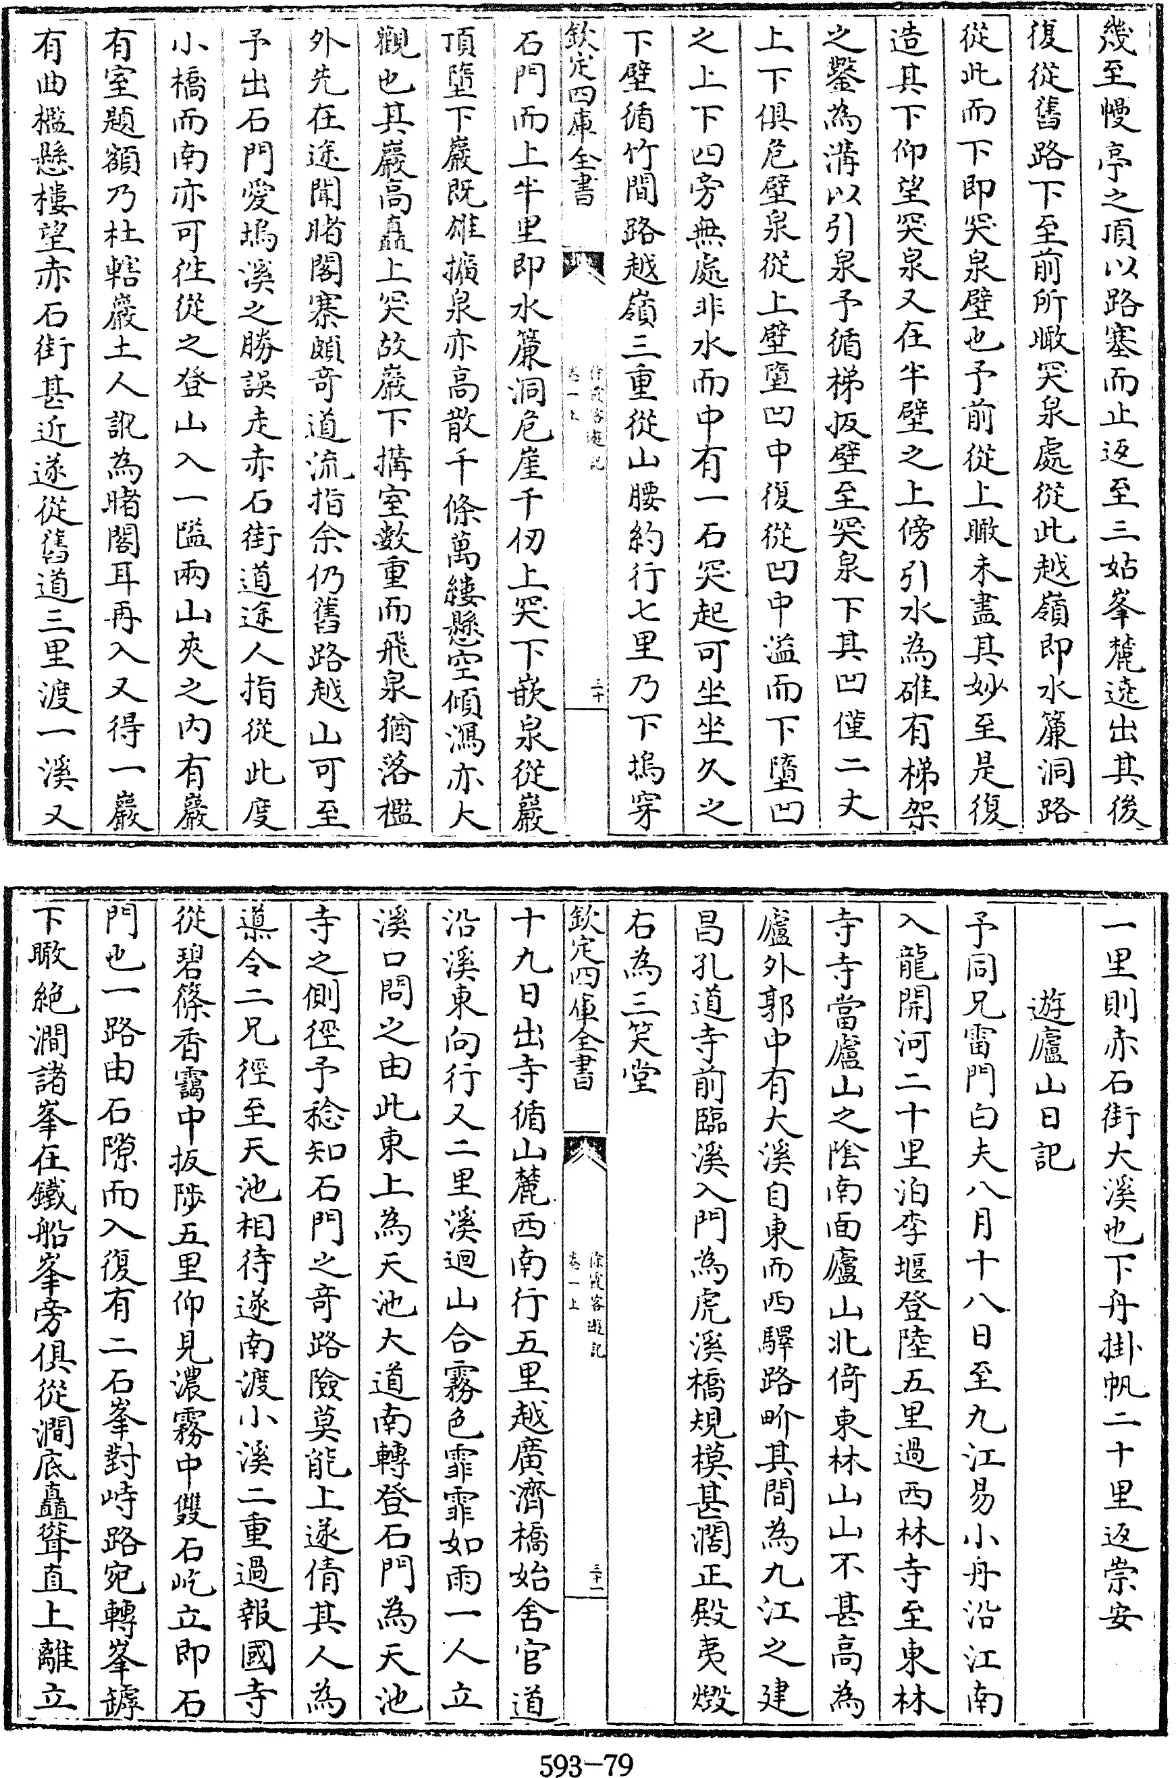 幾至幔亭之頂以路塞而止返至三姑峯麓遶出其後
復從舊路下至前所瞰突泉處從此越嶺即水簾洞路
從此而下即突泉壁也予前從上瞰未盡其妙至是復
造其下仰望突泉又在半壁之上傍引水為碓有梯架
之鑿為溝以引泉予循梯扳壁至突泉下其凹僅二丈
上下俱危壁泉從上壁墮凹中復從凹中溢而下墮凹
之上下四旁無處非水而中有一石突起可坐坐久之
下壁循竹間路越嶺三重從山腰約行七里乃下塢穿
欽定四庫全書
徐霞客遊記
卷一上
三十
石門而上半里即水簾洞危崖千仞上突下嵌泉從巖
頂墮下巖既雄擴泉亦高散千條萬縷懸空傾瀉亦大
觀也其巖高矗上突故巖下搆室數重而飛泉猶落檻
外先在途聞睹閣寨頗奇道流指余仍舊路越山可至
予出石門愛塢溪之勝誤走赤石街道途人指從此度
小橋而南亦可往從之登山入一隘兩山夾之內有巖
有室題額乃杜轄巖土人訛為睹閣耳再入又得一巖
有曲檻懸樓望赤石街甚近遂從舊道三里渡一溪又
一里則赤石街大溪也下舟掛帆二十里返崇安
遊廬山日記
予同兄雷門白夫八月十八日至九江易小舟沿江南
入龍開河二十里泊李堰登陸五里過西林寺至東林
寺寺當廬山之陰南面廬山北倚東林山山不甚高為
廬外郭中有大溪自東而西驛路畍其間為九江之建
昌孔道寺前臨溪入門為虎溪橋規模甚濶正殿夷燬
右為三笑堂
欽定四庫全書
徐霞客遊記
卷一上
三十一
十九日出寺循山麓西南行五里越廣濟橋始舍官道
沿溪東向行又二里溪迴山合霧色霏霏如雨一人立
溪口問之由此東上為天池大道南轉登石門為天池
寺之側徑予稔知石門之奇路險莫能上遂倩其人為
導令二兄徑至天池相待遂南渡小溪二重過報國寺
從碧篠香靄中扳陟五里仰見濃霧中雙石屹立即石
門也一路由石隙而入復有二石峯對峙路宛轉峯罅
下瞰絶澗諸峯在鐵船峯旁俱從澗底矗聳直上離立
593-79